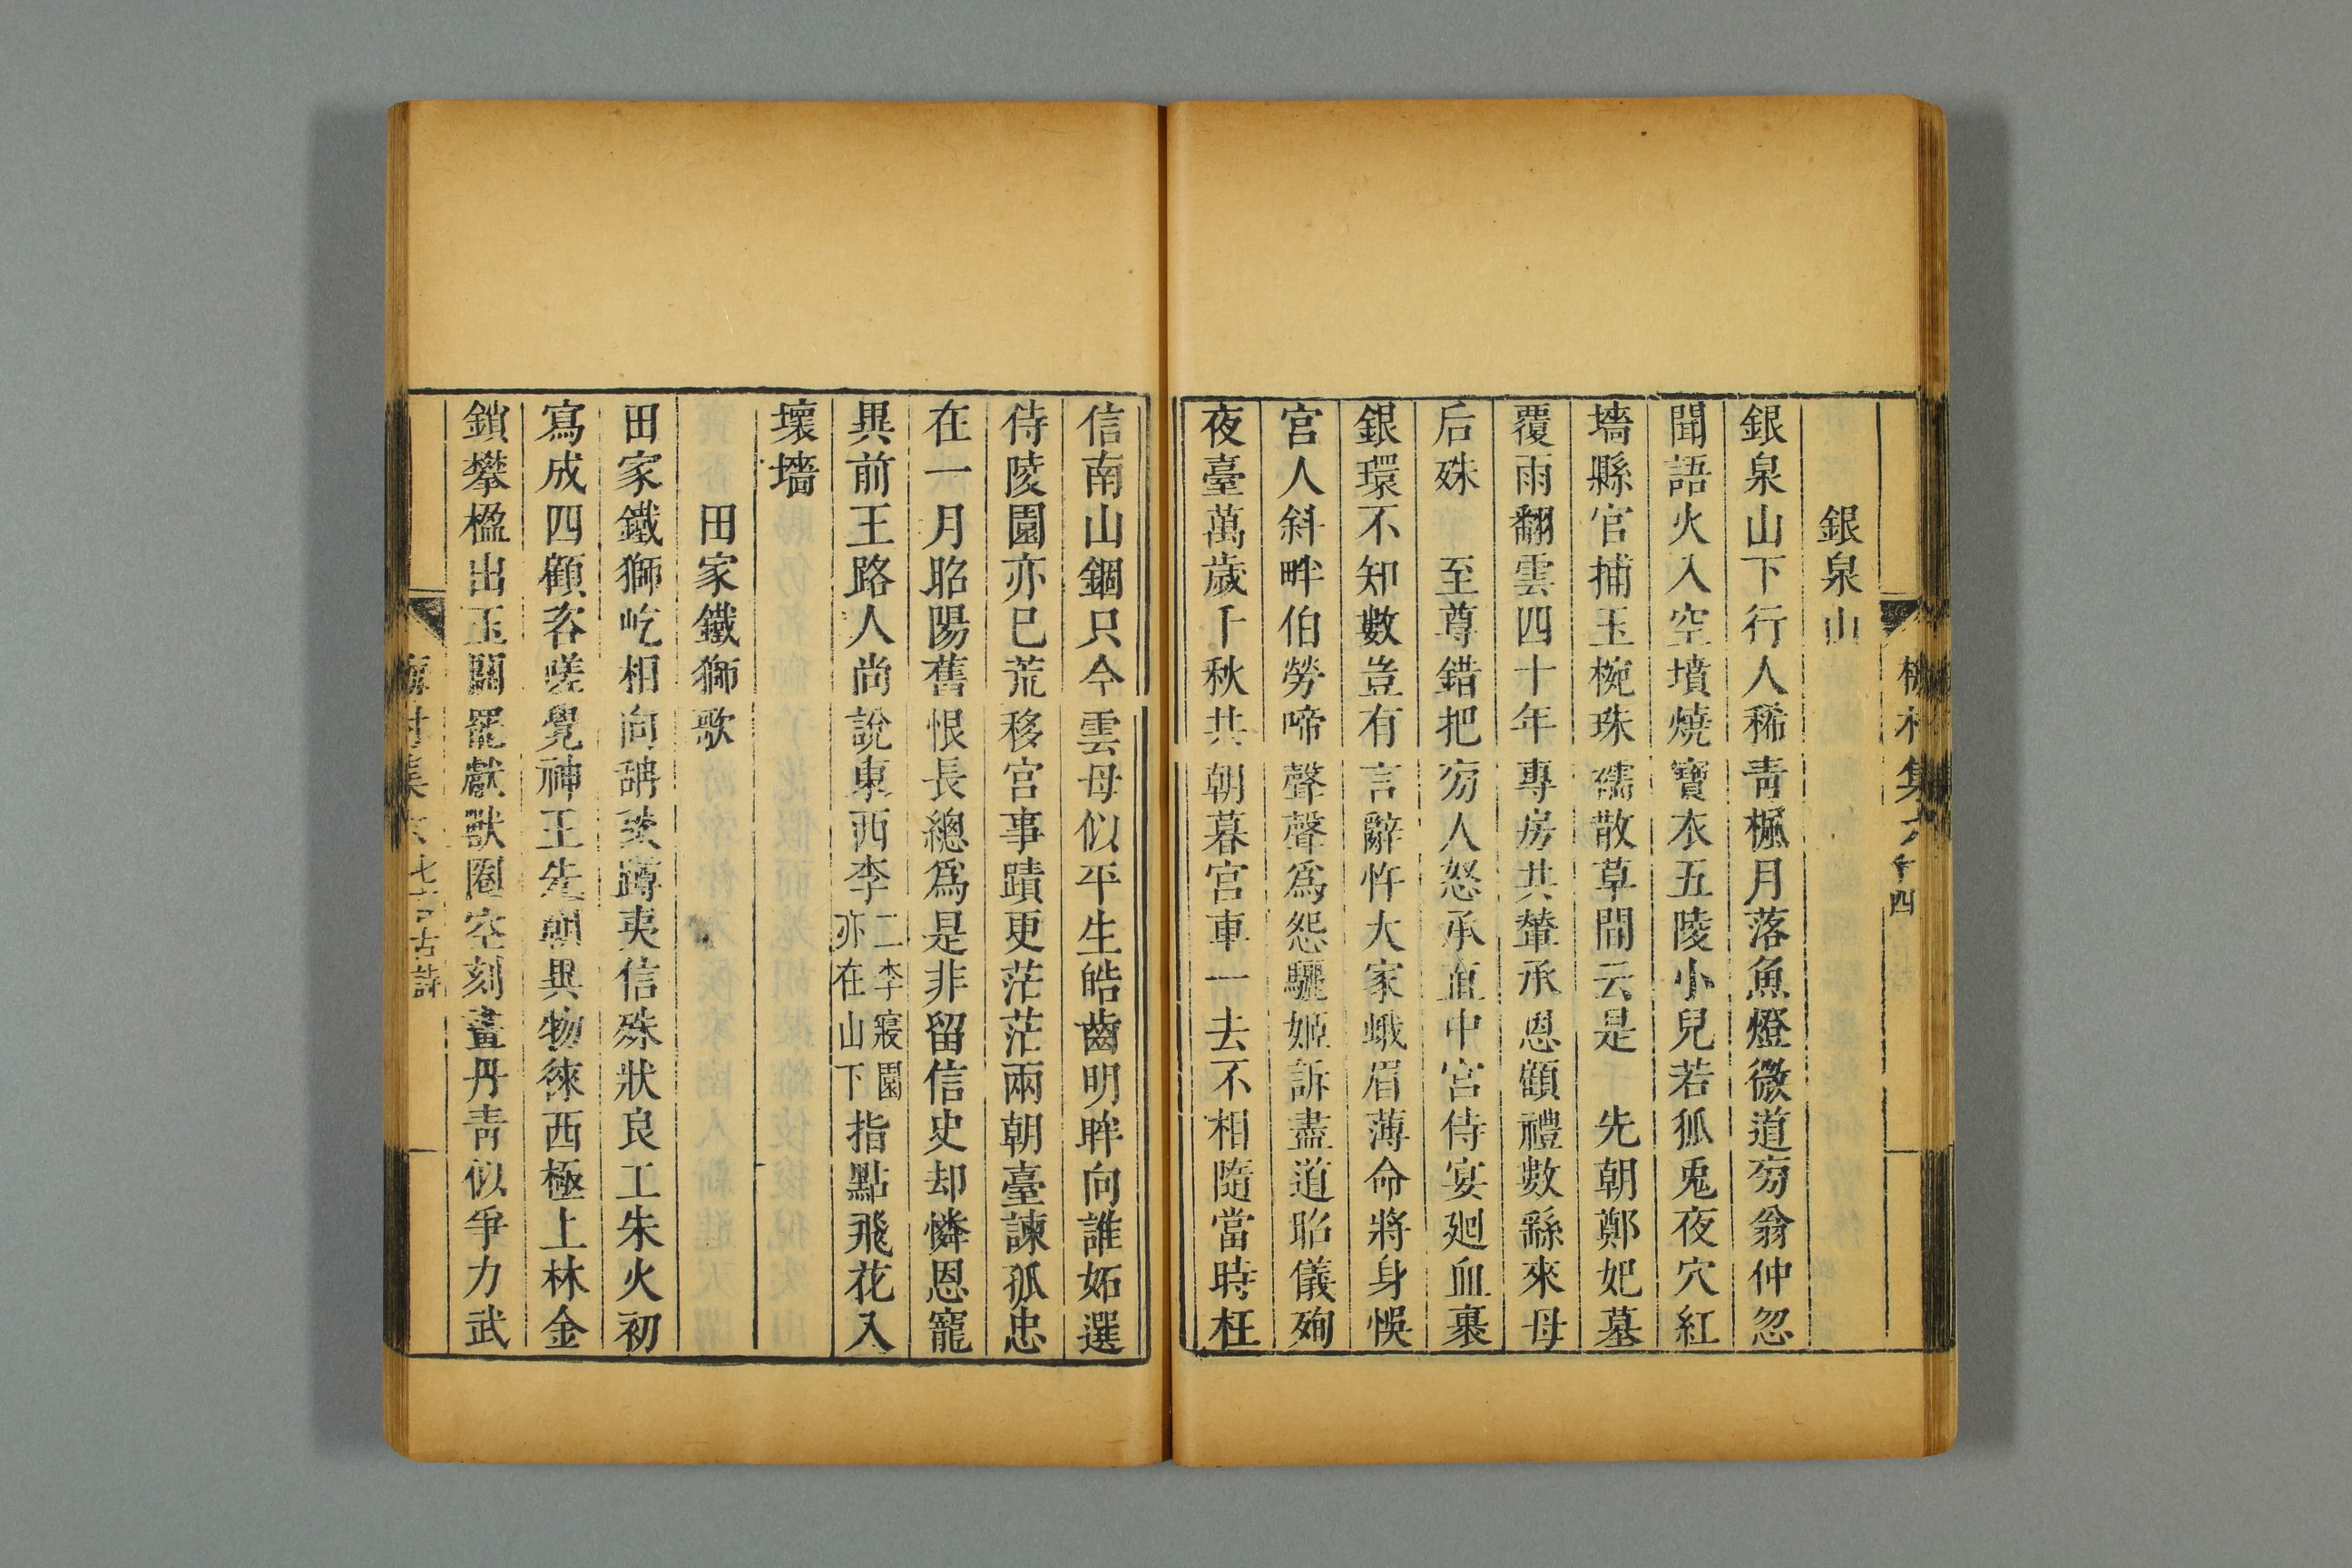 梅村集
四
銀泉山
銀泉山下行人稀青楓月落魚燈微道旁翁仲忽
聞語火入空墳燒寶衣五陵小兒若狐兎夜穴紅
墻縣官捕玉椀珠襦散草間云是 先朝鄭妃墓
覆雨翻雲四十年專房共輦承恩顧禮數繇來母
后殊 至尊錯把旁人怒承直中宮侍宴廻血裹
銀環不知數豈有言辭忤大家蛾眉薄命將身悞
宮人斜畔伯勞啼聲聲爲怨驪姬訴盡道昭儀殉
夜臺萬歲千秋共朝暮宮車一去不相隨當時枉
信南山錮只今雲母似平生皓齒明眸向誰妬選
侍陵園亦已荒移宮事蹟更茫茫兩朝臺諫孤忠
在一月昭陽舊恨長總爲是非留信史却憐恩寵
異前王路人尚說東西李二李寢園亦在山下指點飛花入
壞墻
田家鐵獅歌
田家鐵獅屹相向舑䑙蹲夷信殊狀良工朱火初
寫成四顧客嗟覺神王先朝異物徠西極上林金
鎖攀楹出玉關罷獻獸圈空刻畫丹青似爭力武
梅村集 七言古詩